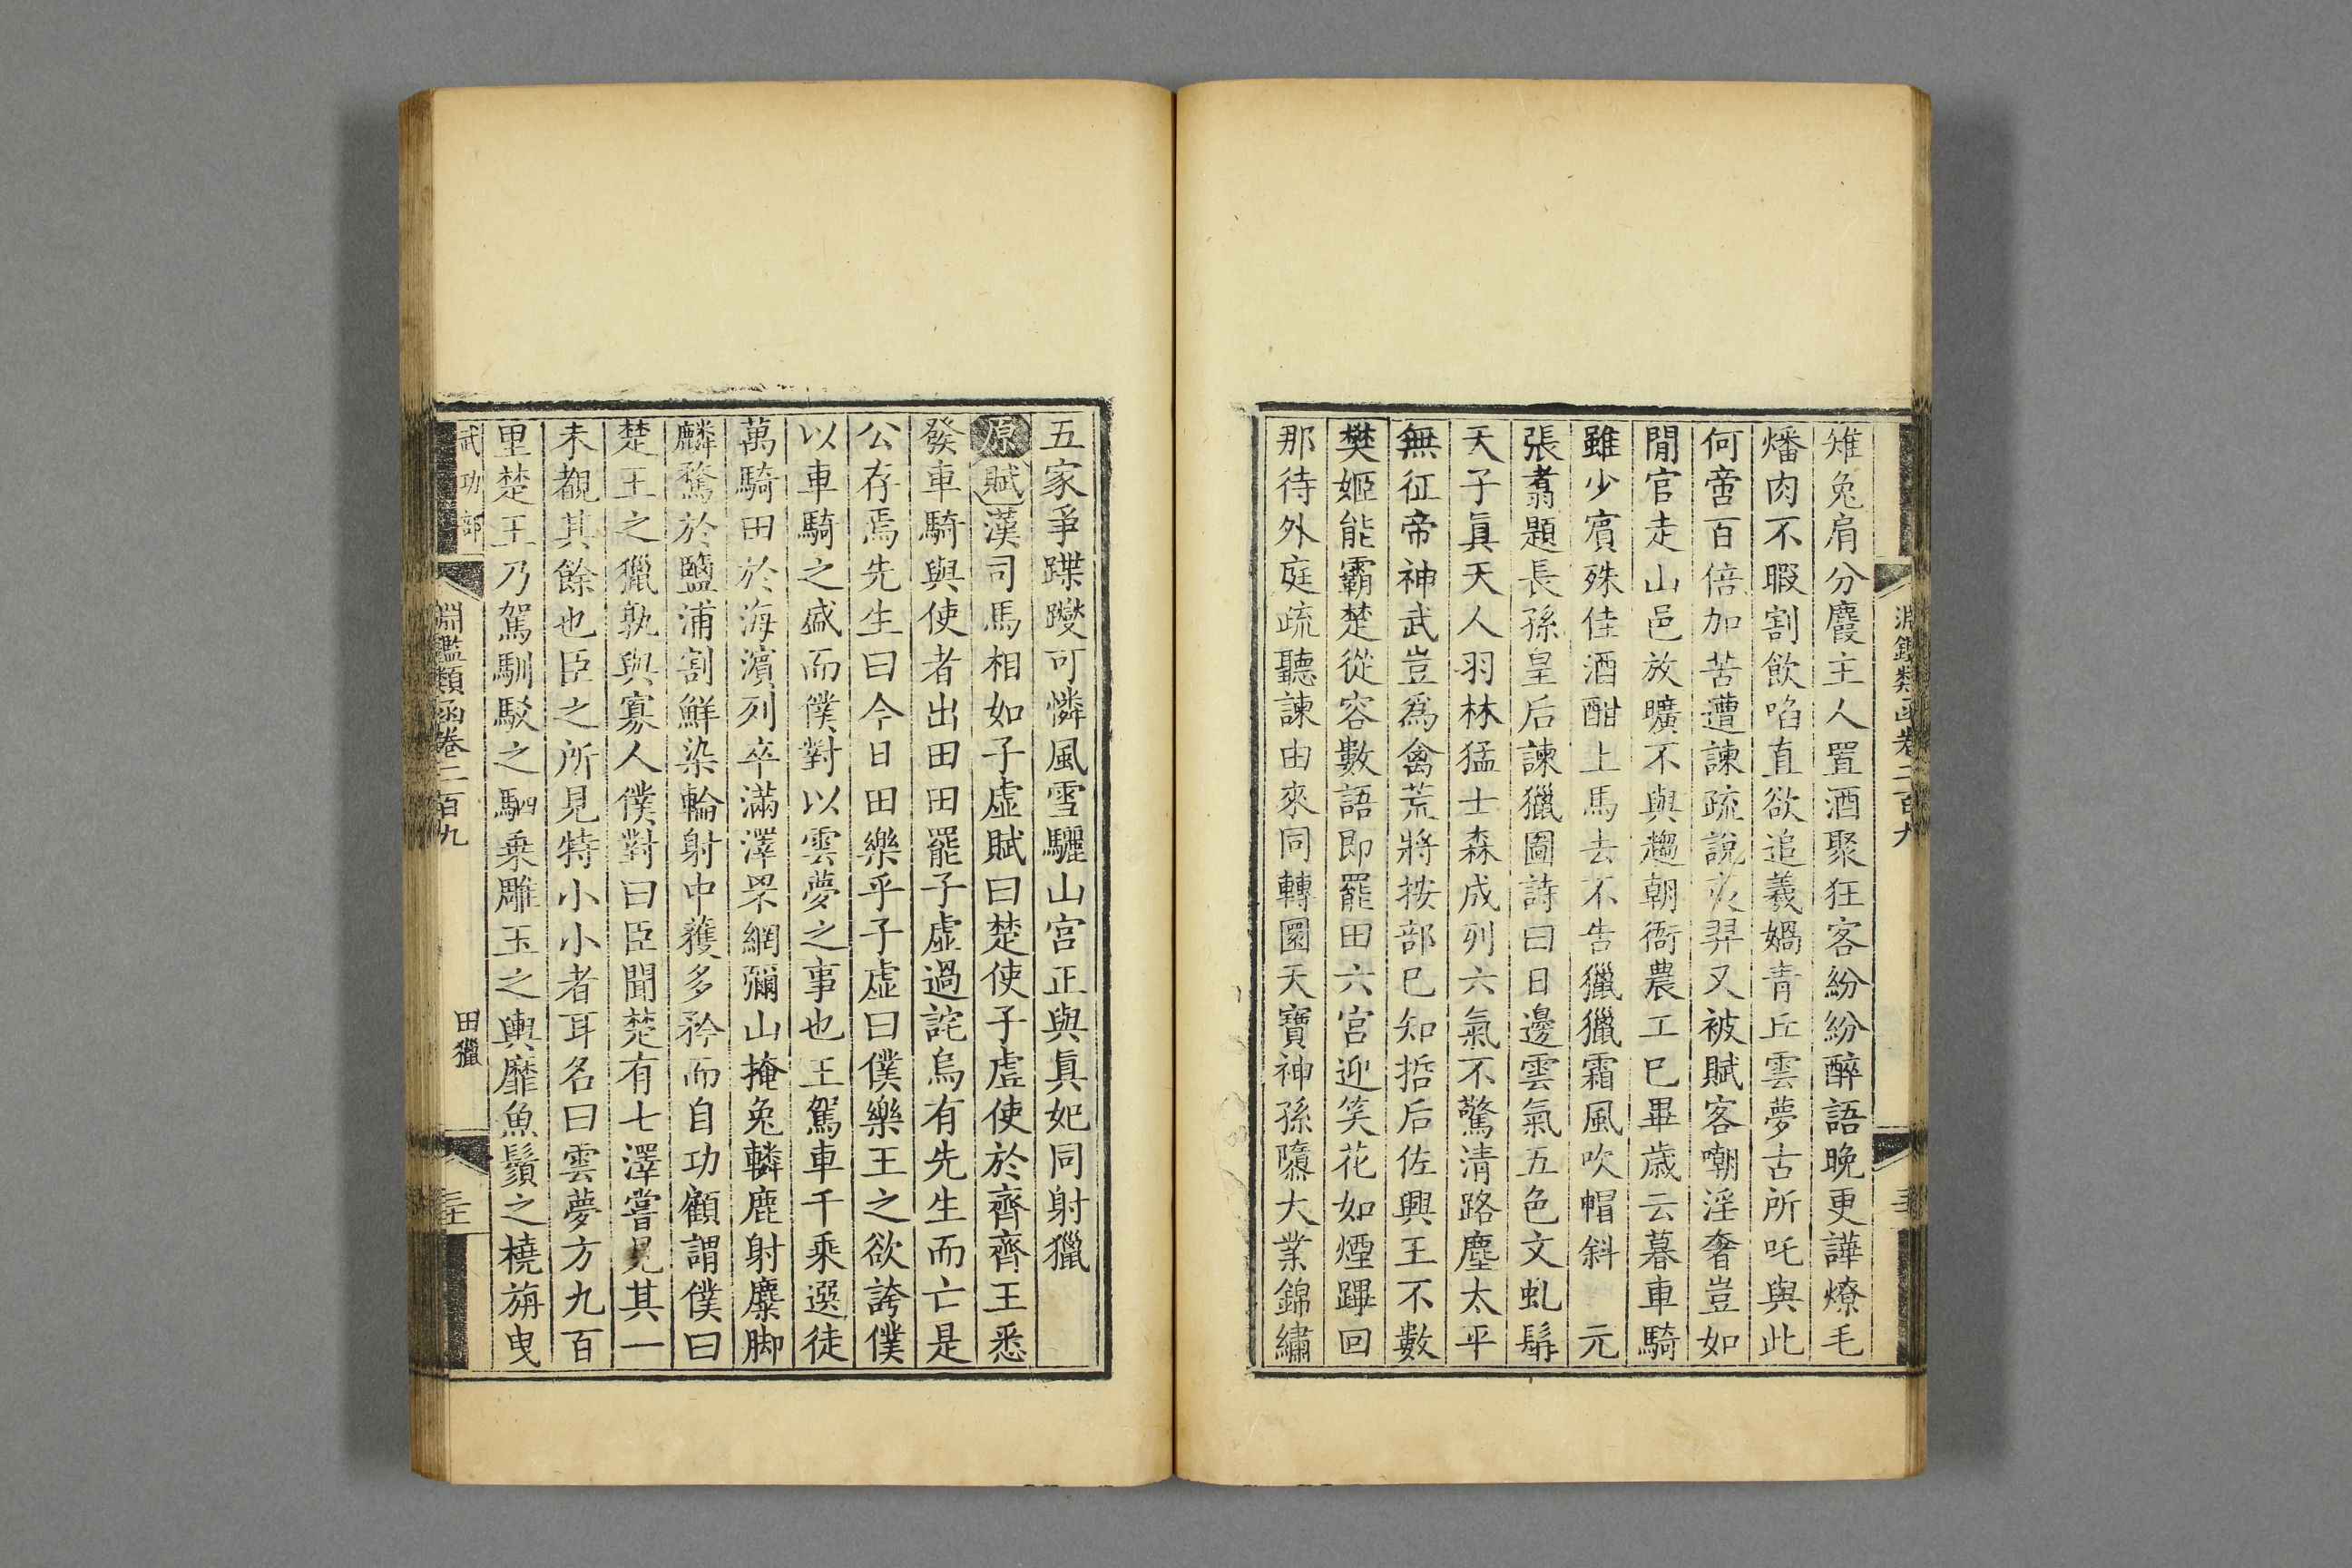 淵鑑類函卷二百九
雉兔肩分麚主人置酒聚狂客紛紛醉語晚更譁燎毛
燔肉不暇割飲啗直欲追羲媧青丘雲夢古所吒與此
何啻百倍加苦遭諫疏說夷羿又被賦客嘲淫奢豈如
閒官走山邑放曠不與趨朝衙農工已畢歲云暮車騎
雖少賓殊佳酒酣上馬去不告獵獵霜風吹帽斜 元
張翥題長孫皇后諫獵圖詩曰日邊雲氣五色文虬髯
天子真天人羽林猛士森成列六氣不驚清路塵太平
無征帝神武豈爲禽荒將按部已知哲后佐興王不數
樊姬能霸楚從容數語即罷田六宮迎笑花如煙蹕回
那待外庭疏聽諫由來同轉圜天寶神孫隳大業錦繡
五家爭蹀躞可憐風雪驪山宮正與真妃同射獵
原賦漢司馬相如子虛賦曰楚使子虛使於齊齊王悉
發車騎與使者出田田罷子虛過詫烏有先生而亡是
公存焉先生曰今日田樂乎子虛曰僕樂王之欲誇僕
以車騎之盛而僕對以雲夢之事也王駕車千乘選徒
萬騎田於海濱列卒滿澤罘網彌山掩兔轔鹿射麋脚
麟騖於鹽浦割鮮染輪射中獲多矜而自功顧謂僕曰
楚王之獵孰與寡人僕對曰臣聞楚有七澤嘗見其一
未覩其餘也臣之所見特小小者耳名曰雲夢方九百
里楚王乃駕馴駁之駟乗雕玉之輿靡魚鬚之橈旃曳
武功部 淵鑑類函卷二百九 田獵